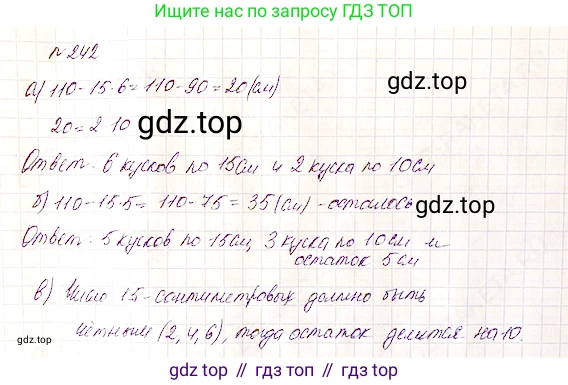 Ищите по запросу ГДЗ ТОП
№ 242
а) 110 - 15 · 6 = 110 - 90 = 20 (см)
gdz.top
20 = 2 · 10
gdz.top
Ответ: 6 кусков по 15 см и 2 куска по 10 см
б) 110 - 15 · 5 = 110 - 75 = 35 (см) - осталось
gdz.top
Ответ: 5 кусков по 15 см, 3 куска по 10 см и
остаток 5 см
в) Число 15-сантиметровых должно быть
чётным (2, 4, 6), тогда остаток делится на 10.
gdz.top
gdz.top
gdz.top // гдз топ // gdz.top // гдз топ